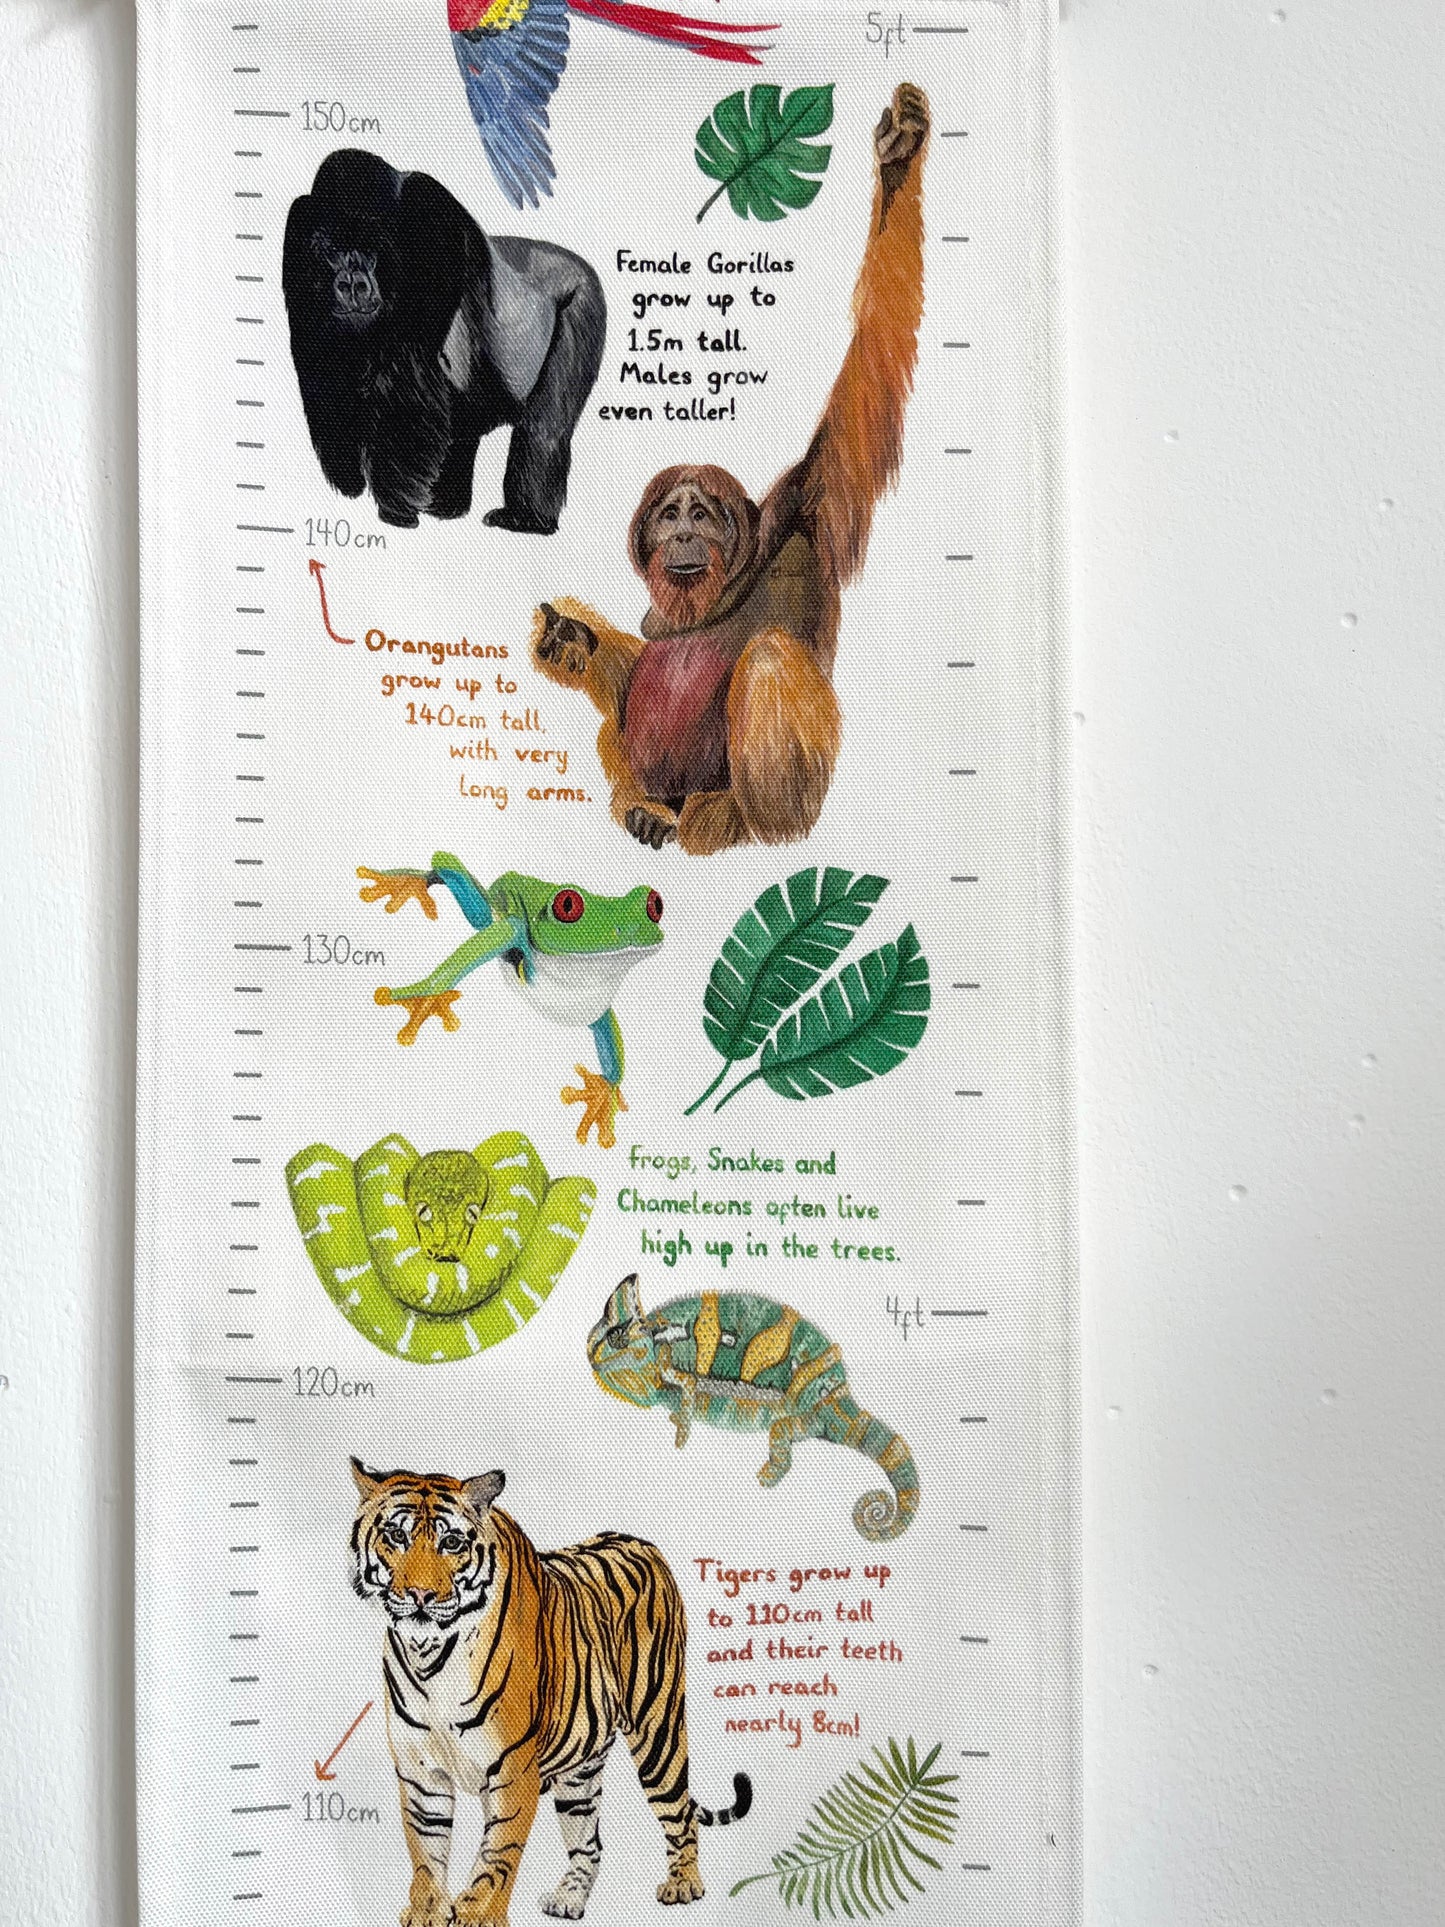 5ft
150cm
Female Gorillas
grow up to
1.5m tall.
Males grow
even taller!
140cm
Orangutans
grow up to
140cm tall,
with very
long arms.
130cm
Frogs, Snakes and
Chameleons often live
high up in the trees.
4ft
120cm
Tigers grow up
to 110cm tall
and their teeth
can reach
nearly 8cm!
110cm